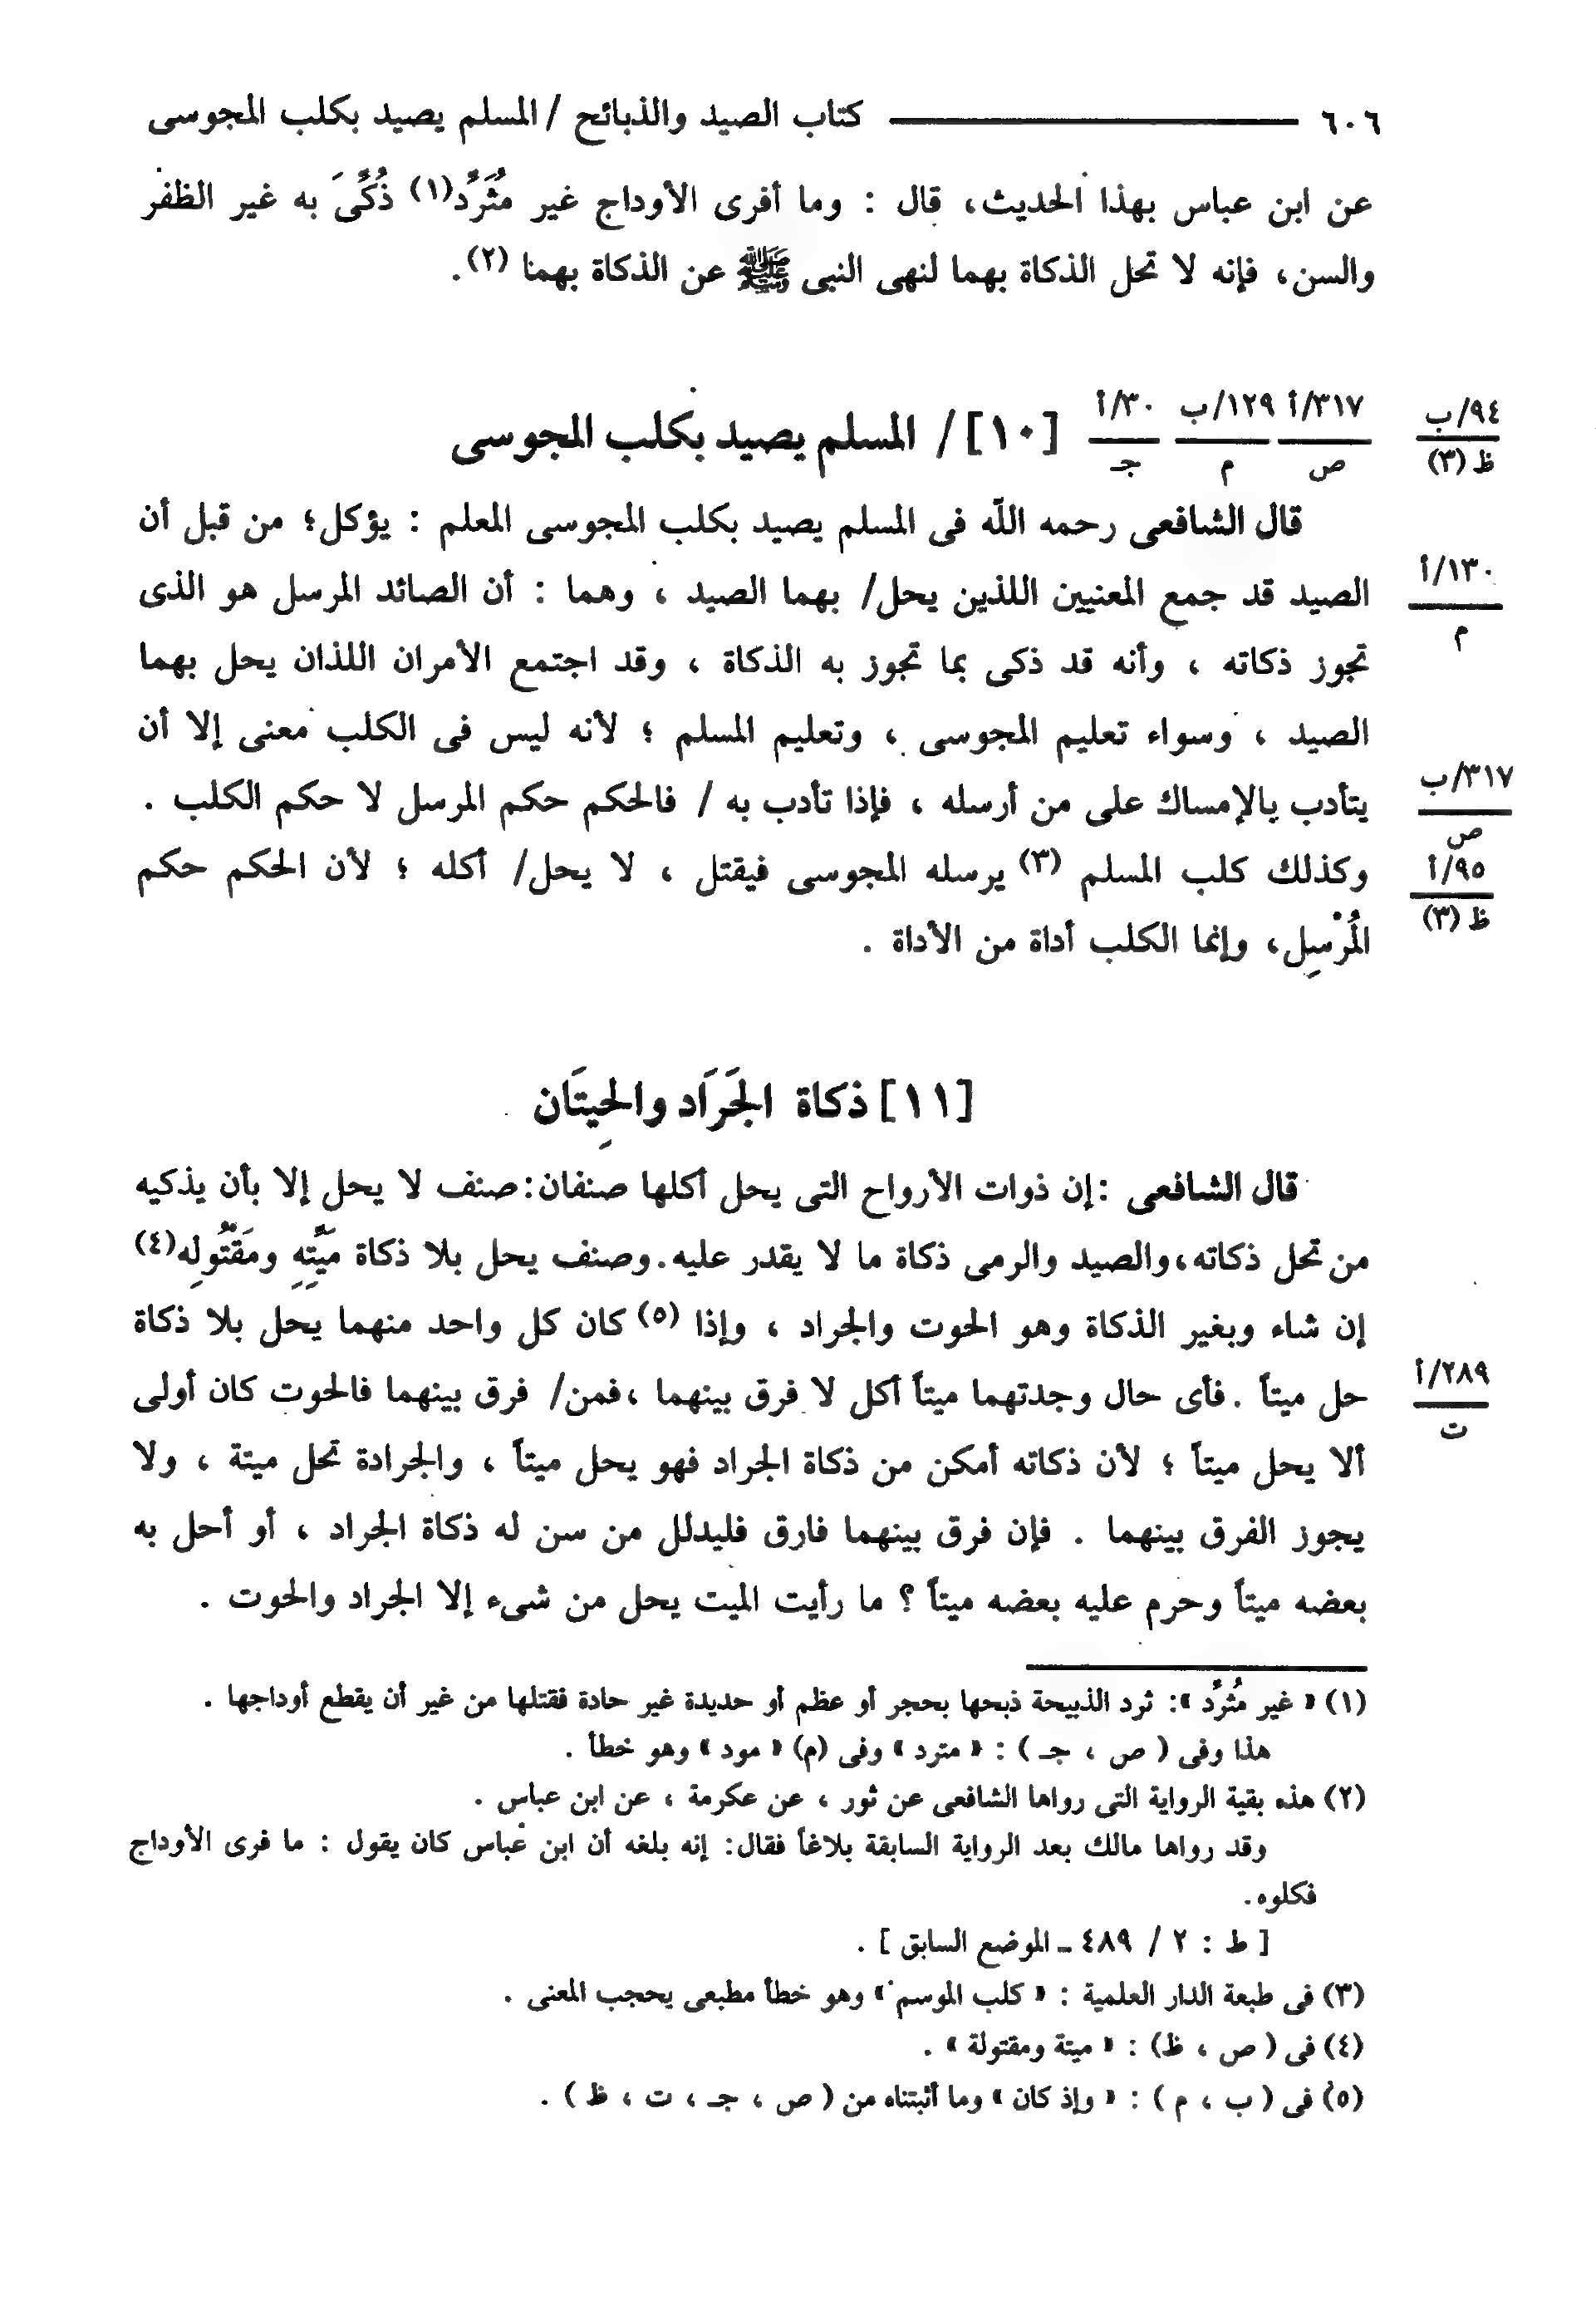 ٦٠٦ كتاب الصيد والذبائح / المسلم يصيد بكلب المجوسى
عن ابن عباس بهذا الحديث، قال : وما أفرى الأوداج غير مُثَرِّد(١) ذُكِّىَ به غير الظفر
والسن، فإنه لا تحل الذكاة بهما لنهى النبى ﷺ عن الذكاة بهما (٢).
٩٤/ب
ظ (٣)
٣١٧/أ
ص
١٢٩/ب
م
٣٠/أ
جـ
[١٠] / المسلم يصيد بكلب المجوسى
قال الشافعى رحمه الله فى المسلم يصيد بكلب المجوسى المعلم : يؤكل؛ من قبل أن
الصيد قد جمع المعنيين اللذين يحل/ بهما الصيد ، وهما : أن الصائد المرسل هو الذى
١٣٠/أ
م
تجوز ذكاته ، وأنه قد ذكى بما تجوز به الذكاة ، وقد اجتمع الأمران اللذان يحل بهما
الصيد ، وسواء تعليم المجوسى ، وتعليم المسلم ؛ لأنه ليس فى الكلب معنى إلا أن
يتأدب بالإمساك على من أرسله ، فإذا تأدب به / فالحكم حكم المرسل لا حكم الكلب .
٣١٧/ب
ص
وكذلك كلب المسلم (٣) يرسله المجوسى فيقتل ، لا يحل/ أكله ؛ لأن الحكم حكم
٩٥/أ
ظ (٣)
المُرْسِل، وإنما الكلب أداة من الأداة .
[١١] ذكاة الجَرَاد والحِيتَان
قال الشافعى :إن ذوات الأرواح التى يحل أكلها صنفان:صنف لا يحل إلا بأن يذكيه
من تحل ذكاته،والصيد والرمى ذكاة ما لا يقدر عليه.وصنف يحل بلا ذكاة مَيِّتِهِ ومَقْتُولِه(٤)
إن شاء وبغير الذكاة وهو الحوت والجراد ، وإذا (٥) كان كل واحد منهما يحل بلا ذكاة
حل ميتاً .فأى حال وجدتهما ميتاً أكل لا فرق بينهما ،فمن/ فرق بينهما فالحوت كان أولى
٢٨٩/أ
ت
ألا يحل ميتاً ؛ لأن ذكاته أمكن من ذكاة الجراد فهو يحل ميتاً ، والجرادة تحل ميتة ، ولا
يجوز الفرق بينهما . فإن فرق بينهما فارق فليدلل من سن له ذكاة الجراد ، أو أحل به
بعضه ميتاً وحرم عليه بعضه ميتاً ؟ ما رأيت الميت يحل من شىء إلا الجراد والحوت .
(١) « غير مُثرِّد »: ثرد الذبيحة ذبحها بحجر أو عظم أو حديدة غير حادة فقتلها من غير أن يقطع أوداجها .
هذا وفى ( ص ، جـ ) : « مترد » وفى (م) « مود » وهو خطأ .
(٢) هذه بقية الرواية التى رواها الشافعى عن ثور ، عن عكرمة ، عن ابن عباس .
وقد رواها مالك بعد الرواية السابقة بلاغاً فقال: إنه بلغه أن ابن عباس كان يقول : ما فرى الأوداج
فكلوه.
[ ط : ٢ / ٤٨٩ ـ الموضع السابق ] .
(٣) فى طبعة الدار العلمية : « كلب الموسم » وهو خطأ مطبعى يحجب المعنى .
(٤) فى ( ص ، ظ) : « ميتة ومقتولة » .
(٥) فى ( ب ، م ) : « وإذ كان » وما أثبتناه من ( ص ، جـ ، ت ، ظ ) .